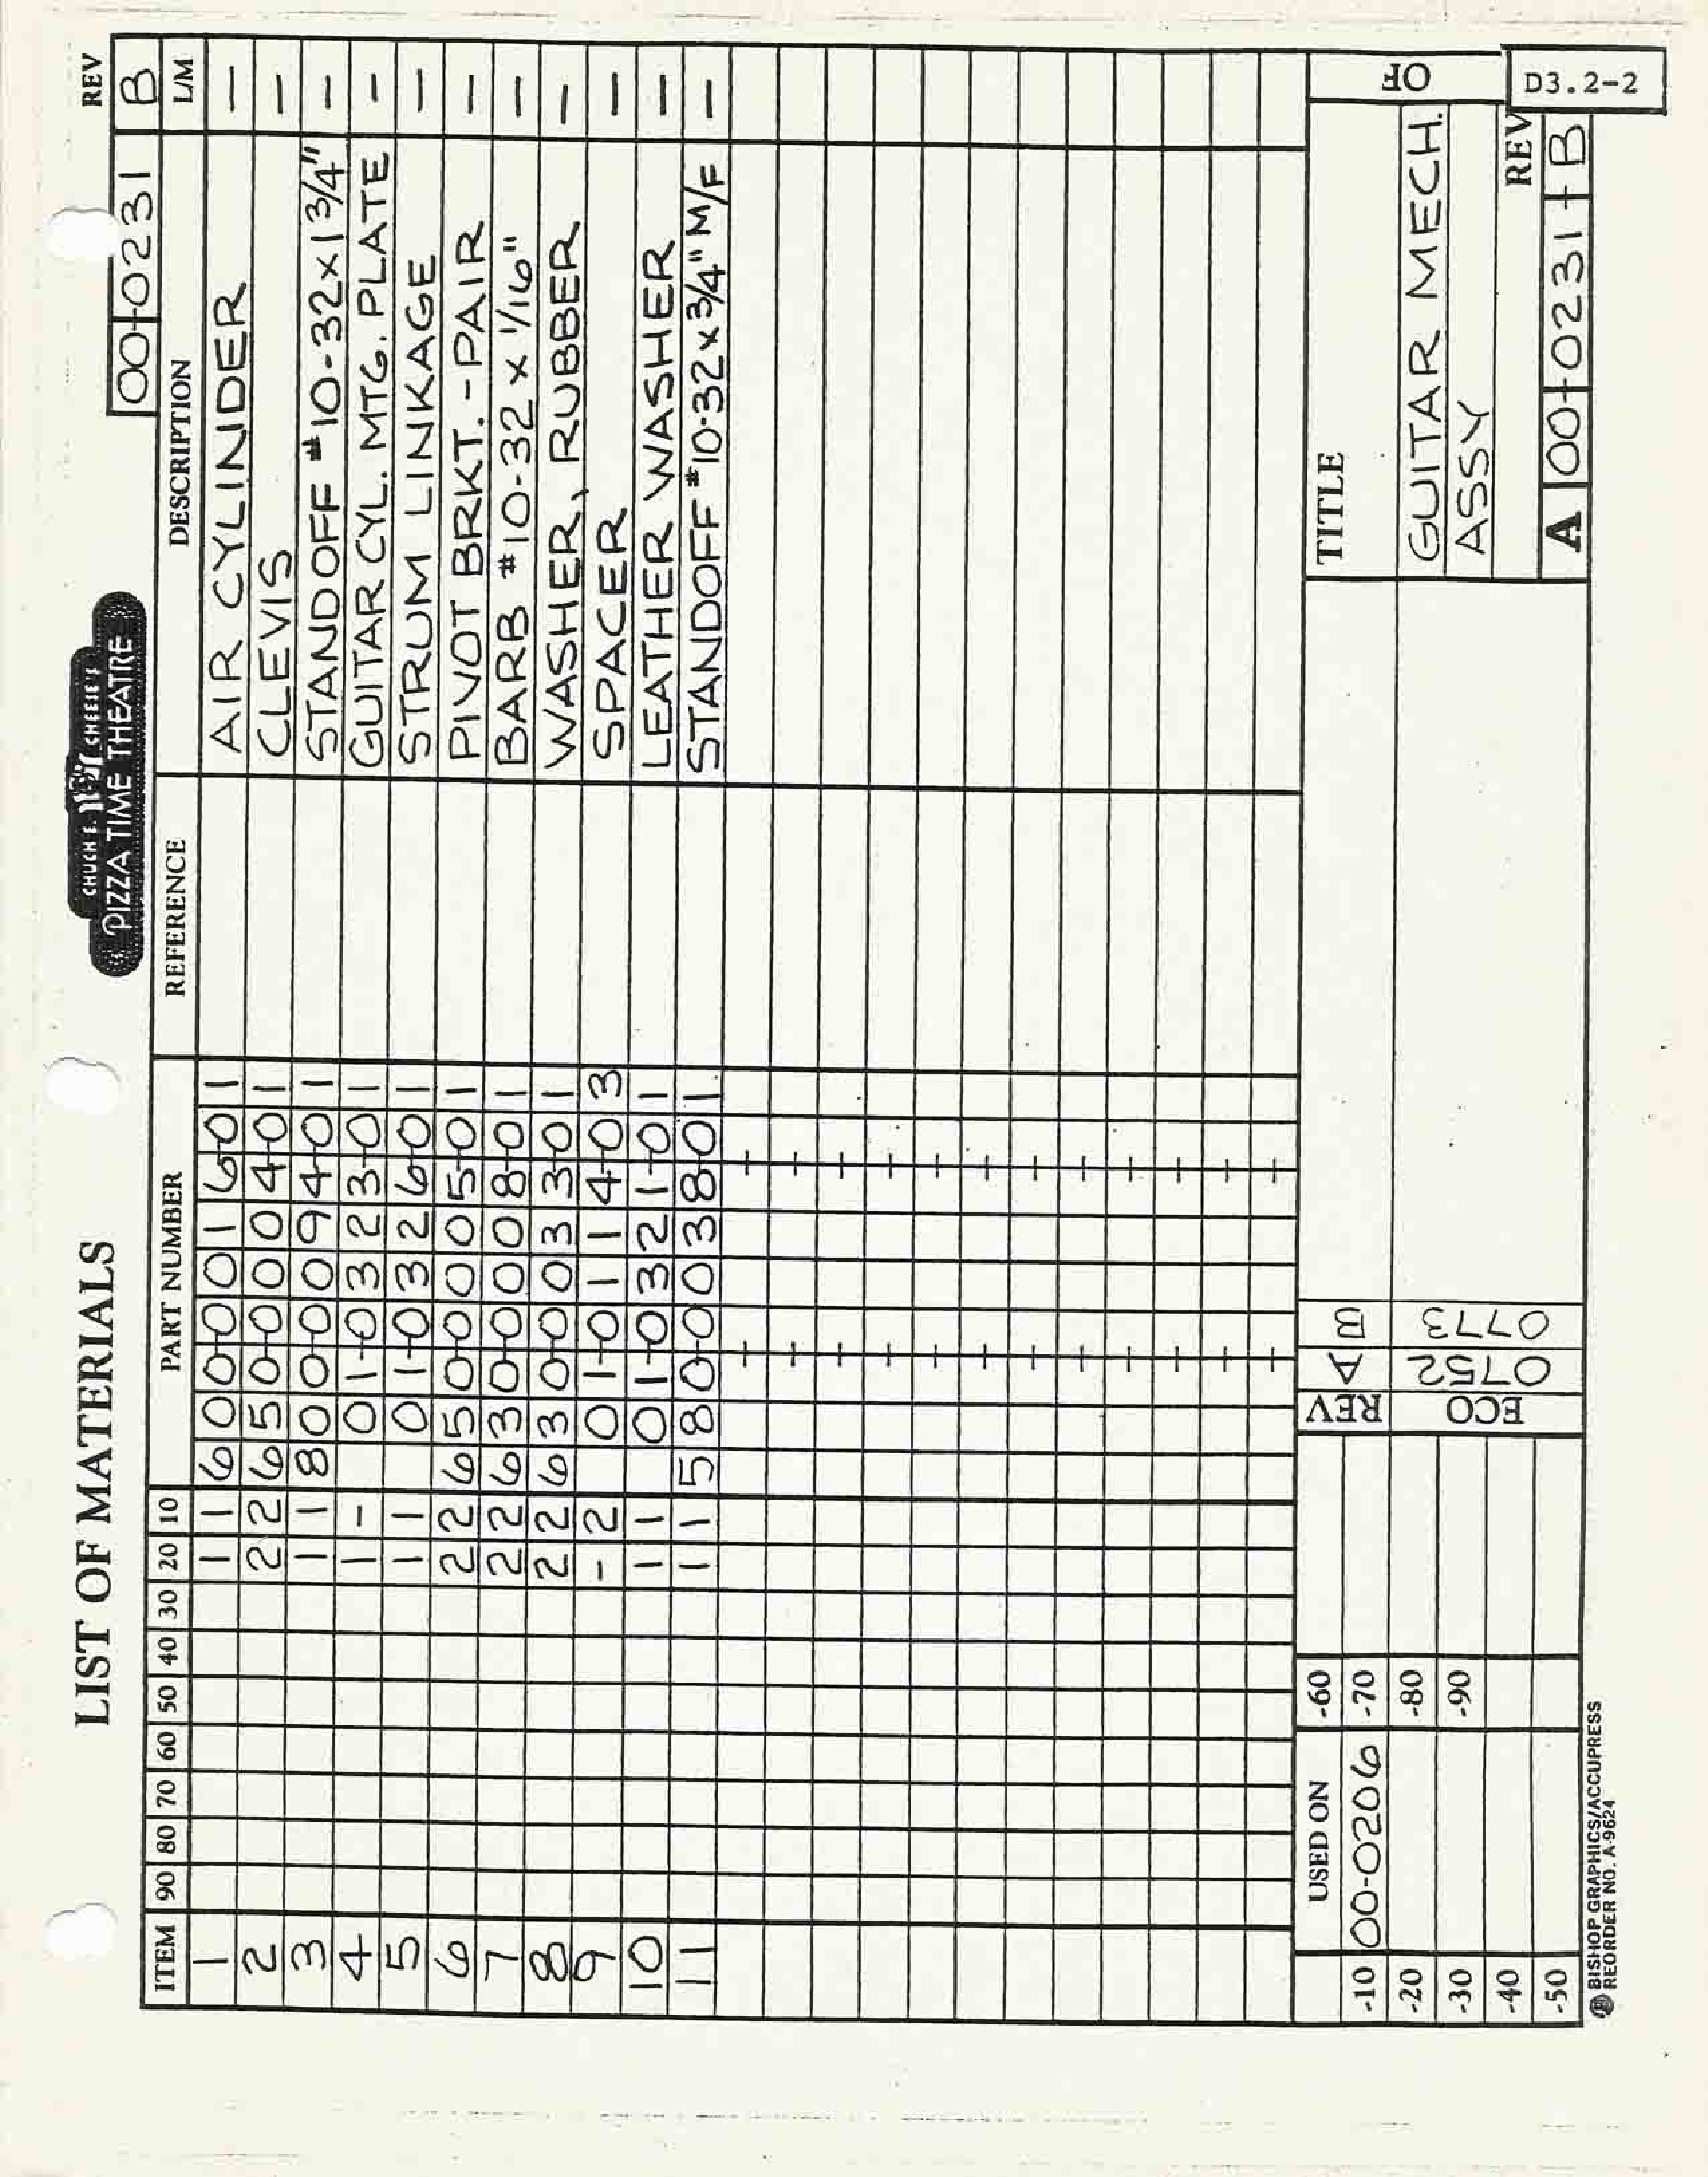 LIST OF MATERIALS
CHUCK E. CHEESE'S
PIZZA TIME THEATRE
REV
00-0231 B
ITEM 90 80 70 60 50 40 30 20 10 PART NUMBER REFERENCE DESCRIPTION L/M
1 1 1 600-0016-01 AIR CYLINDER —
2 2 2 650-0004-01 CLEVIS —
3 1 1 800-0094-01 STANDOFF #10-32 x 1 3/4" —
4 1 - 01-0323-01 GUITAR CYL. MTG. PLATE —
5 1 1 01-0326-01 STRUM LINKAGE —
6 2 2 650-0005-01 PIVOT BRKT. - PAIR —
7 2 2 630-0008-01 BARB #10-32 x 1/16" —
8 2 2 630-0033-01 WASHER, RUBBER —
9 - 2 01-0114-03 SPACER —
10 1 1 01-0321-01 LEATHER WASHER —
11 1 1 580-0038-01 STANDOFF #10-32 x 3/4" M/F —
USED ON
-10 00-0206
-20
-30
-40
-50
-60
-70
-80
-90
REV A B
ECO 0752 0773
TITLE
GUITAR MECH.
ASSY
REV
A 00-0231-B
OF
D3.2-2
BISHOP GRAPHICS/ACCUPRESS
REORDER NO. A-9624